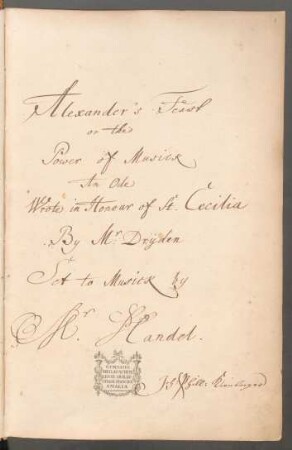 Alexander's Feast
or the
Power of Musick
An Ode
Wrote in Honour of St. Cecilia
By Mr Dryden
Set to Musick by
Mr Handel.